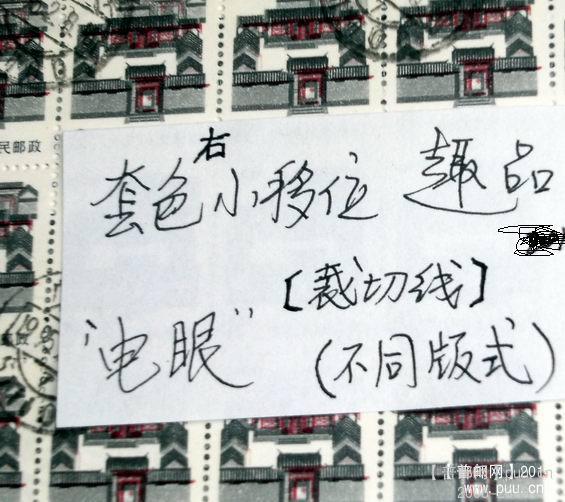 民邮政
右
套色小移位 趣品
[裁切线]
"电眼" (不同版式)
www.puu.cn